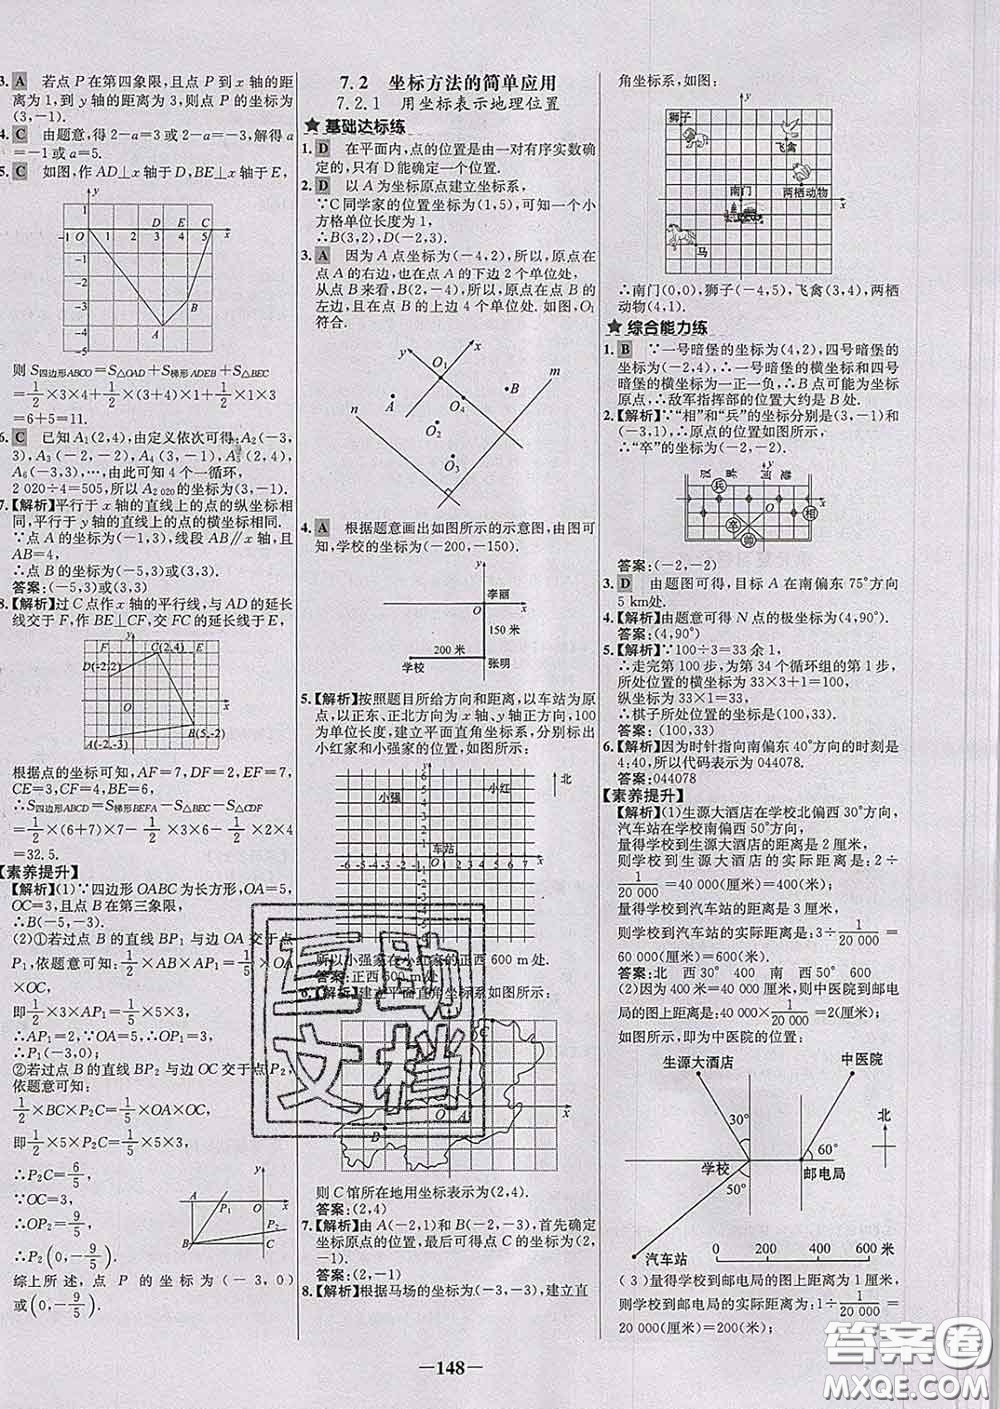 3. A 若点 P 在第四象限,且点 P 到 x 轴的距
离为 1,到 y 轴的距离为 3,则点 P 的坐标为
(3,-1).
4. C 由题意,得 2-a=3 或 2-a=-3,解得 a
=-1 或 a=5.
5. C 如图,作 AD⊥x 轴于 D,BE⊥x 轴于 E,
则 S四边形ABCO=S△OAD+S梯形ADEB+S△BEC
=1/2×3×4+1/2×(3+4)×1+1/2×1×3
=6+5=11.
6. C 已知 A₁(2,4),由定义依次可得:A₂(-3,
3),A₃(-2,-2),A₄(3,-1),A₅(2,4),
A₆(-3,3),…,由此可知 4 个一循环,
2 020÷4=505,所以 A₂ ₀₂₀的坐标为(3,-1).
7.【解析】平行于 x 轴的直线上的点的纵坐标相
同,平行于 y 轴的直线上的点的横坐标相同.
∵点 A 的坐标为(-1,3),线段 AB∥x 轴,且
AB=4,
∴点 B 的坐标为(-5,3)或(3,3).
答案:(-5,3)或(3,3)
8.【解析】过 C 点作 x 轴的平行线,与 AD 的延长
线交于 F,作 BE⊥CF,交 FC 的延长线于 E,
根据点的坐标可知,AF=7,DF=2,EF=7,
CE=3,CF=4,BE=6,
∴S四边形ABCD=S梯形BEFA-S△BEC-S△CDF
=1/2×(6+7)×7-1/2×3×6-1/2×2×4
=32.5.
【素养提升】
【解析】(1)∵四边形 OABC 为长方形,OA=5,
OC=3,且点 B 在第三象限,
∴B(-5,-3).
(2)①若过点 B 的直线 BP₁ 与边 OA 交于点
P₁,依题意可知:1/2×AB×AP₁=1/5×OA
×OC,
即1/2×3×AP₁=1/5×5×3,
∴AP₁=2.∵OA=5,∴OP₁=3,
∴P₁(-3,0).
②若过点 B 的直线 BP₂ 与边 OC 交于点 P₂,
依题意可知:
1/2×BC×P₂C=1/5×OA×OC,
即1/2×5×P₂C=1/5×5×3,
∴P₂C=6/5,
∵OC=3,
∴OP₂=9/5,
∴P₂(0,-9/5).
综上所述,点 P 的坐标为(-3,0)
或(0,-9/5).
7.2 坐标方法的简单应用
7.2.1 用坐标表示地理位置
★基础达标练
1. D 在平面内,点的位置是由一对有序实数确
定的,只有 D 能确定一个位置.
2. D 以 A 为坐标原点建立坐标系,
∵C 同学家的位置坐标为(1,5),可知一个小
方格单位长度为 1,
∴B(3,2),D(-2,3).
3. A 因为 A 点坐标为(-4,2),所以,原点在
点 A 的右边,也在点 A 的下边 2 个单位处.
从点 B 来看,B(2,-4),所以,原点在点 B 的
左边,且在点 B 的上边 4 个单位处.如图,O₁
符合.
4. A 根据题意画出如图所示的示意图,由图可
知,学校的坐标为(-200,-150).
李丽
150 米
200 米
学校
张明
5.【解析】按照题目所给方向和距离,以车站为原
点,以正东、正北方向为 x 轴、y 轴正方向,100
为单位长度,建立平面直角坐标系,分别标出
小红家和小强家的位置,如图所示:
北
小强 小红
车站
所以小强家在小红家的正西 600 m处.
答案:正西 600 m处
6.【解析】建立平面直角坐标系如图所示:
则 C 馆所在地用坐标表示为(2,4).
答案:(2,4)
7.【解析】由 A(-2,1)和 B(-2,-3),首先确定
坐标原点的位置,最后可得点 C 的坐标为(2,
-1).
答案:(2,-1)
8.【解析】根据马场的坐标为(-3,-3),建立直
角坐标系,如图:
狮子
飞禽
南门 两栖动物
马
∴南门(0,0),狮子(-4,5),飞禽(3,4),两栖
动物(4,1).
★综合能力练
1. B ∵一号暗堡的坐标为(4,2),四号暗堡的
坐标为(-2,4),∴一号暗堡的横坐标和四号
暗堡的横坐标为一正一负,∴B 点可能为坐标
原点,∴敌军指挥部的位置大约是 B 处.
2.【解析】∵"相"和"兵"的坐标分别是(3,-1)和
(-3,1),∴原点的位置如图所示,
∴"卒"的坐标为(-2,-2).
答案:(-2,-2)
3. D 由题图可得,目标 A 在南偏东 75°方向
5 km处.
4.【解析】由题意可得 N 点的极坐标为(4,90°).
答案:(4,90°)
5.【解析】∵100÷3=33 余 1,
∴走完第 100 步,为第 34 个循环组的第 1 步,
所处位置的横坐标为 33×3+1=100,
纵坐标为 33×1=33,
∴棋子所处位置的坐标是(100,33).
答案:(100,33)
6.【解析】因为时针指向南偏东 40°方向的时刻是
4:40,所以代码表示为 044078.
答案:044078
【素养提升】
【解析】(1)生源大酒店在学校北偏西 30°方向,
汽车站在学校南偏西 50°方向,
量得学校到生源大酒店的距离是 2 厘米,
则学校到生源大酒店的实际距离为:2÷
1/20 000=40 000(厘米)=400(米),
量得学校到汽车站的距离是 3 厘米,
则学校到汽车站的实际距离为:3÷1/20 000=
60 000(厘米)=600(米).
答案:北 西 30° 400 南 西 50° 600
(2)因为 400 米=40 000 厘米,中医院到邮电
局的图上距离是:40 000×1/20 000=2(厘米),
如图所示,即为中医院的位置:
生源大酒店 中医院
30° 北
学校 60°
邮电局
50°
汽车站 0 200 400 600 米
(3)量得学校到邮电局的图上距离是 1 厘米,
则学校到邮电局的实际距离为:1÷1/20 000=
20 000(厘米)=200(米);
—148—
答案圈
MXQE.COM